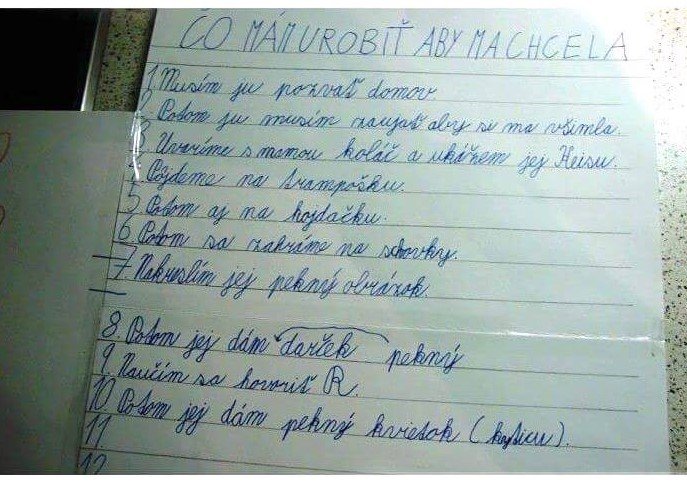 ČO MÁM UROBIŤ ABY MA CHCELA
1 Musím ju pozvať domov
2 Potom ju musím zaujať aby si ma všimla.
3 Uvaríme s mamou koláč a ukážem jej Keisu.
4 Pôjdeme na trampošku.
5 Potom aj na hojdačku.
6 Potom sa zahráme na schovky.
7. Nakreslím jej pekný obrázok.
8. Potom jej dám darček pekný
9 Naučím sa hovoriť R.
10 Potom jej dám pekný kvietok (kyticu).
11
12